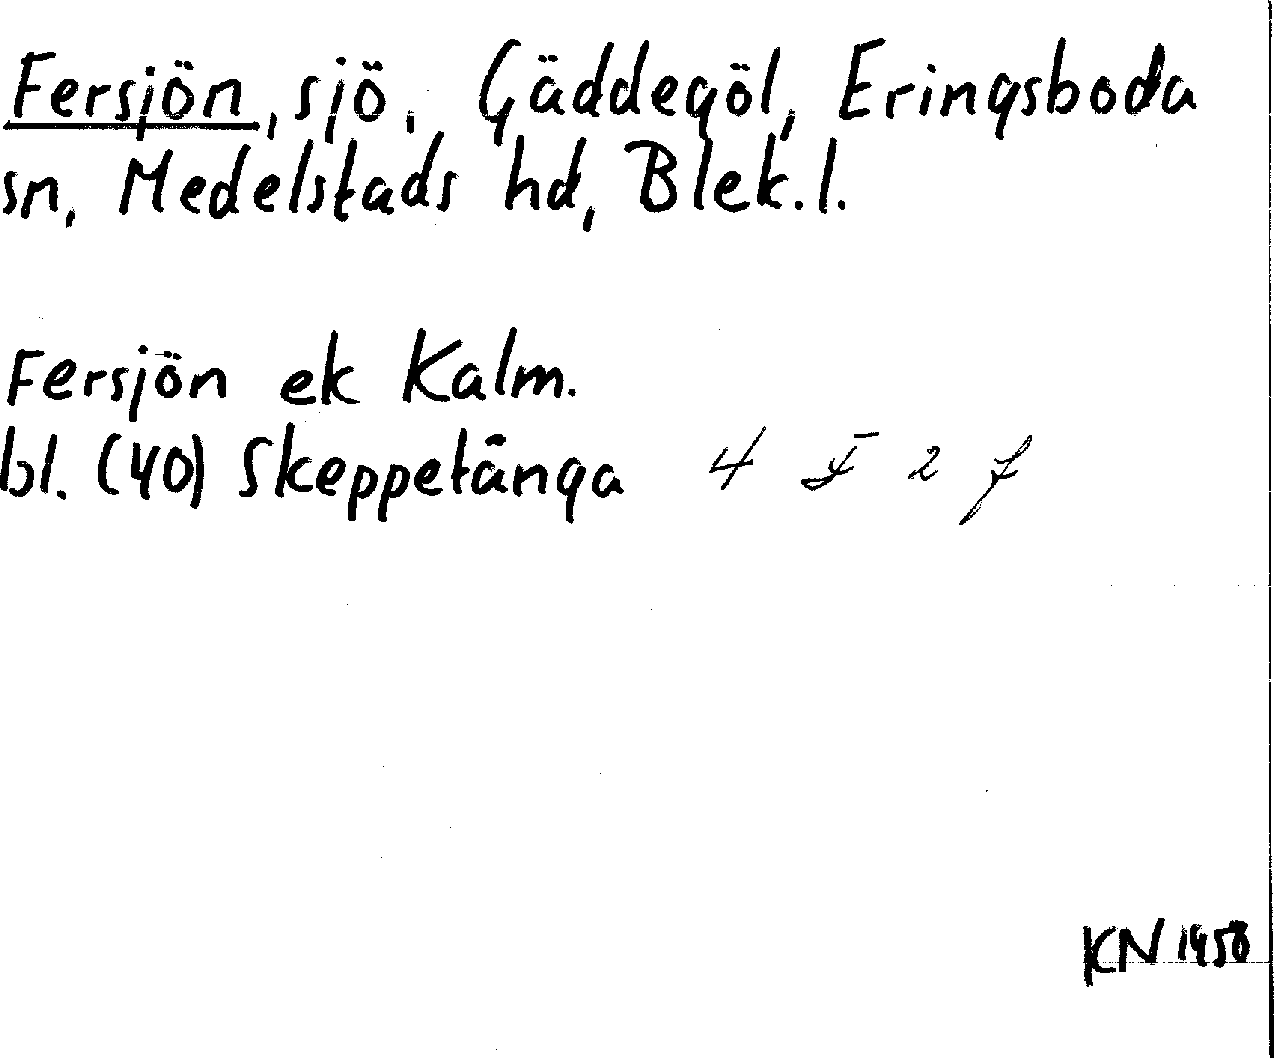 Fersjön, sjö, Gäddegöl, Eringsboda
sn, Medelstads hd, Blek.l.
Fersjön ek Kalm.
bl. (40) Skeppetånga 4 F 2 f
KN 1958